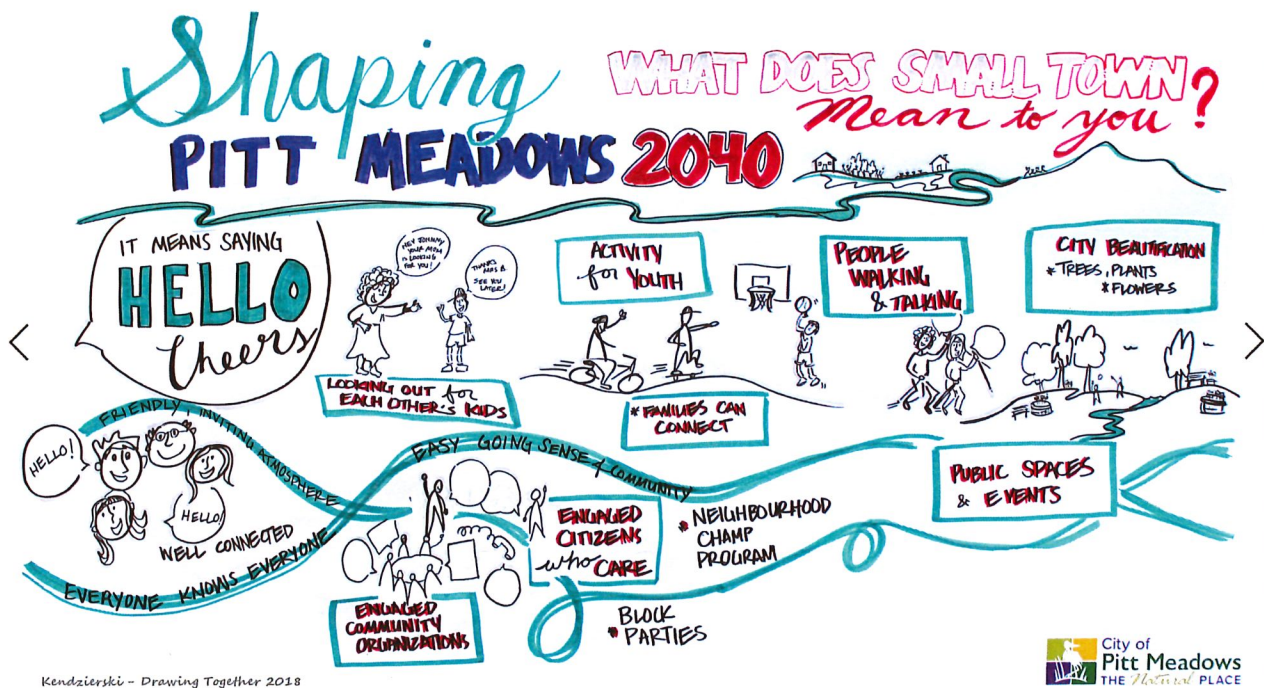 Shaping
PITT MEADOWS 2040
WHAT DOES SMALL TOWN
Mean to you?
IT MEANS SAYING
HELLO
Cheers
HEY JOHNNY
YOUR MOM
IS LOOKING
FOR YOU!
THANKS
MRS B.
SEE YOU
LATER!
LOOKING OUT for
EACH OTHER'S KIDS
ACTIVITY
for YOUTH
* FAMILIES CAN
CONNECT
PEOPLE
WALKING
& TALKING
CITY BEAUTIFICATION
* TREES, PLANTS
* FLOWERS
FRIENDLY, INVITING ATMOSPHERE
HELLO!
HELLO!
WELL CONNECTED
EVERYONE KNOWS EVERYONE
EASY GOING SENSE of COMMUNITY
ENGAGED
CITIZENS
who CARE
* NEIGHBOURHOOD
CHAMP
PROGRAM
PUBLIC SPACES
& EVENTS
ENGAGED
COMMUNITY
ORGANIZATIONS
BLOCK
* PARTIES
Kendzierski - Drawing Together 2018
City of
Pitt Meadows
THE Natural PLACE